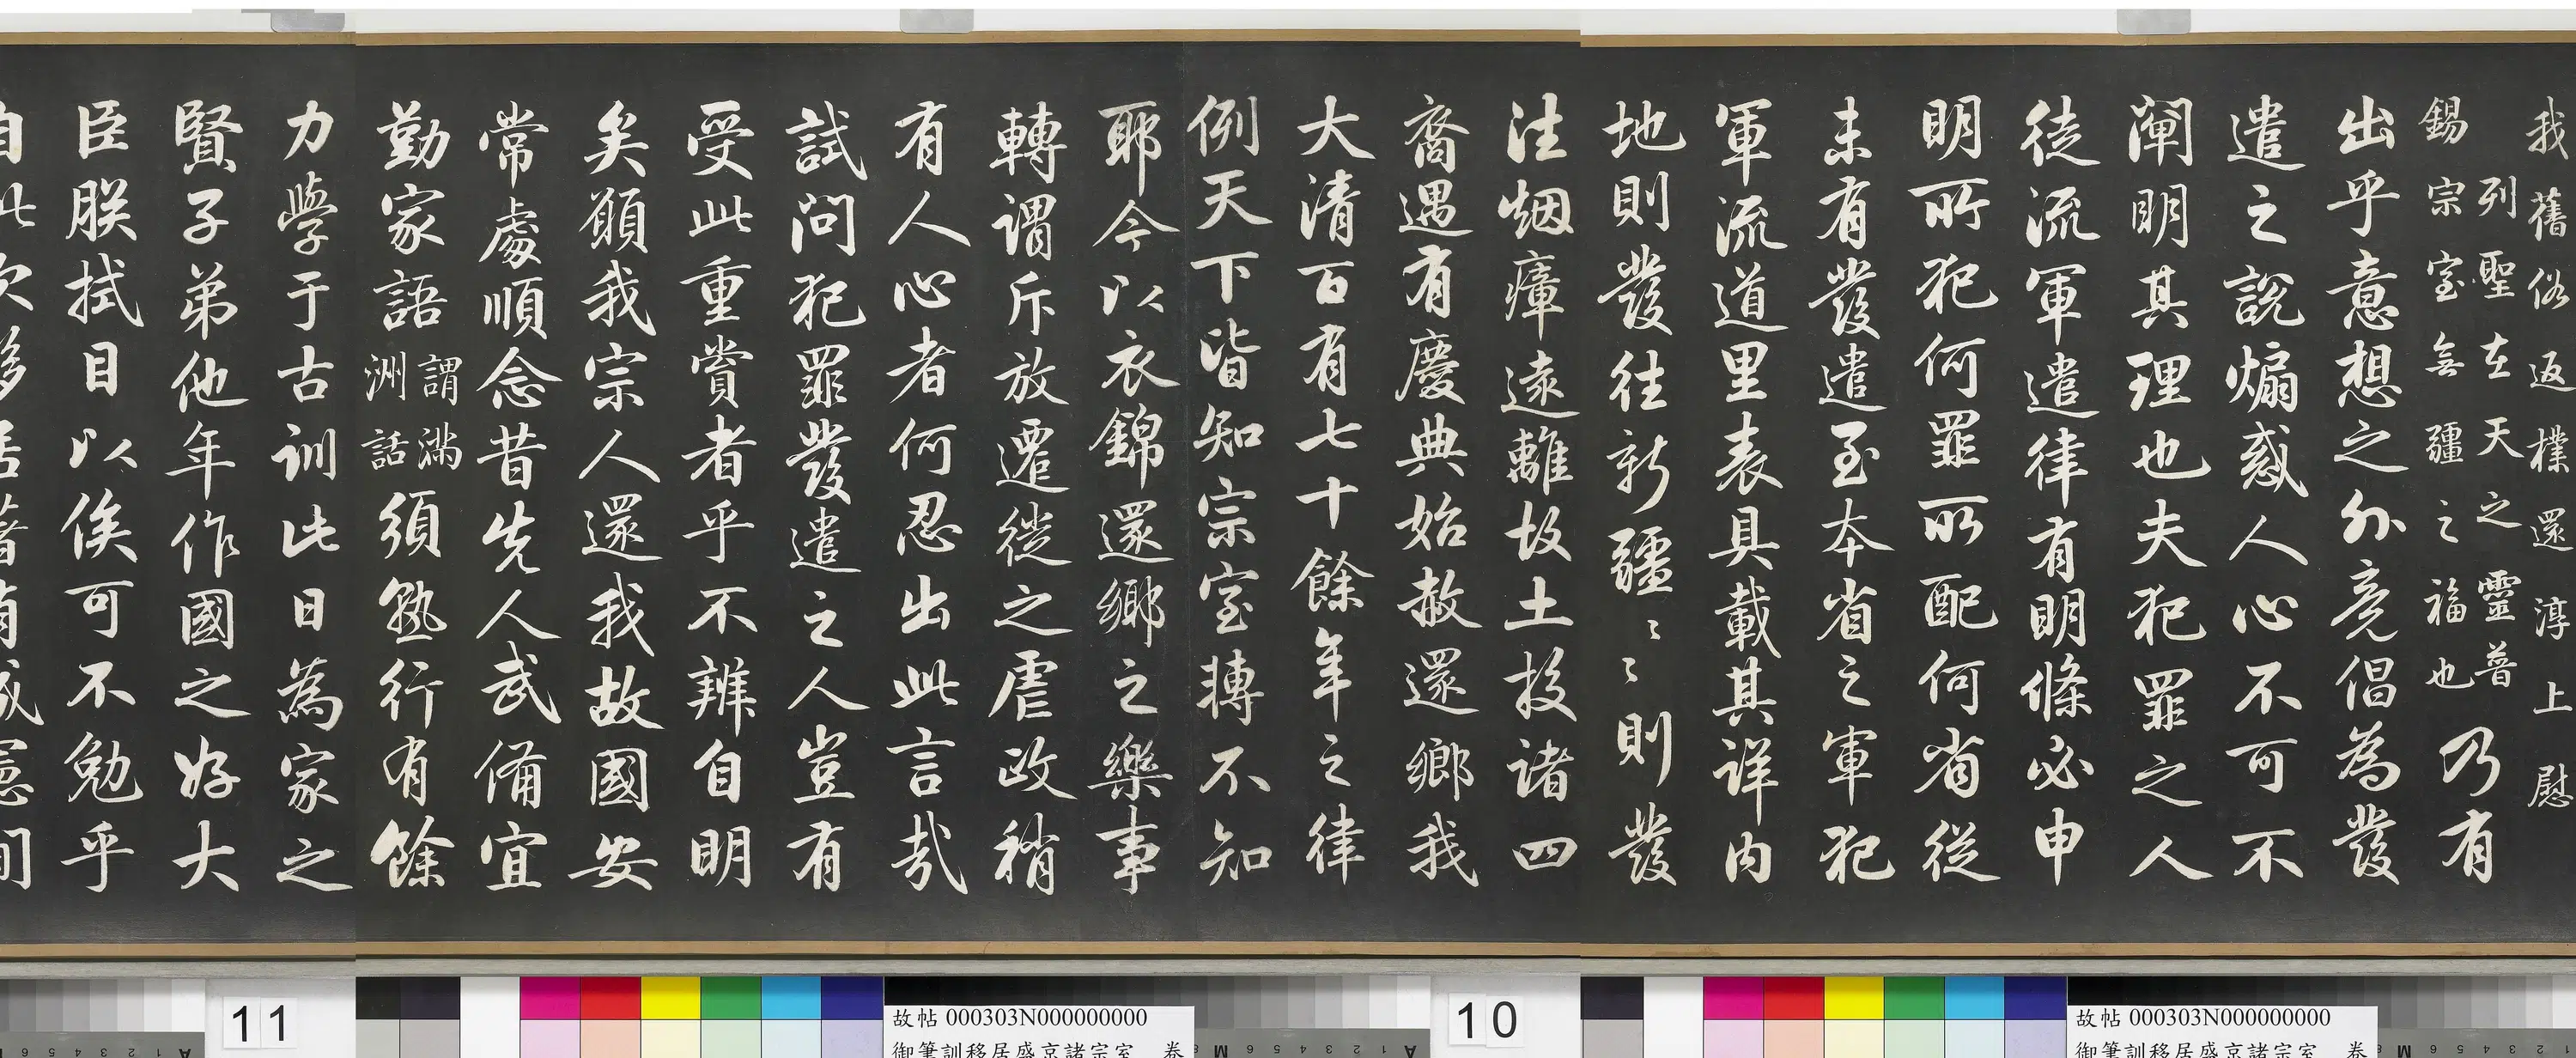 我舊俗返樸還淳上慰
列聖在天之靈普
錫宗室無疆之福也
乃有
出乎意想之外竟倡為發
遣之說煽惑人心不可不
闡明其理也夫犯罪之人
徒流軍遣律有明條必申
明所犯何罪所配何省從
未有發遣至本省之軍犯
軍流道里表具載其詳內
地則發往新疆〻〻則發
往烟瘴遠離故土投諸四
裔遇有慶典始赦還鄉我
大清百有七十餘年之律
例天下皆知宗室轉不知
耶今以衣錦還鄉之樂事
轉謂斥放遷徙之虐政稍
有人心者何忍出此言哉
試問犯罪發遣之人豈有
受此重賞者乎不辨自明
矣願我宗人還我故國安
常處順念昔先人武備宜
勤家語
謂滿
洲話
須熟行有餘
力學于古訓此日為家之
賢子弟他年作國之好大
臣朕拭目以俟可不勉乎
自此次移居著有成憲
11
10
故帖 000303N000000000
御筆訓移居盛京諸宗室 卷
故帖 000303N000000000
御筆訓移居盛京諸宗室 卷